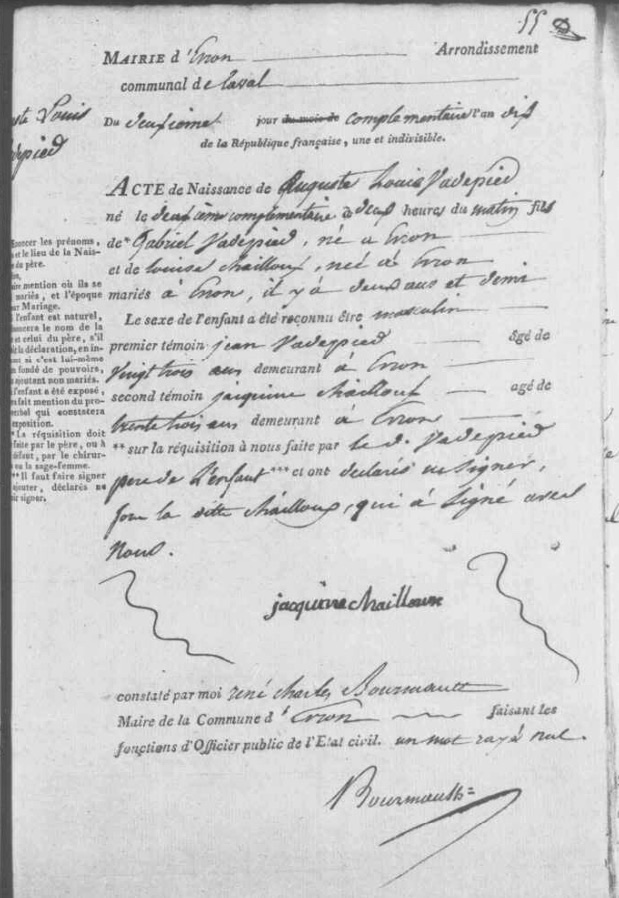 55
MAIRIE d'Erron Arrondissement
communal de Laval
Du deuxieme jour du mois de complementaire l'an dix
de la République française, une et indivisible.
uste Louis
depied
ACTE de Naissance de Auguste Louis Vadepied
né le deuxième complémentaire à deux heures du matin fils
de* Gabriel Vadepied, né a Erron
et de Louise Chailloux, neé à Erron
mariés à Erron, il y à deux ans et demi
Le sexe de l'enfant a été reconnu être masculin
premier témoin jean Vadepied âgé de
vingt trois ans demeurant à Erron
second témoin jacquine Chailloux agé de
trente trois ans demeurant à Erron
** sur la réquisition à nous faite par le d. Vadepied
pere de L'enfant *** et ont declarés ne Signer,
fors la ditte Chailloux, qui à Signé avec
Nous.
noncer les prénoms,
et le lieu de la Nais-
du père.
ire mention où ils se
mariés, et l'époque
ur Mariage.
l'enfant est naturel,
noncera le nom de la
et celui du père, s'il
it la déclaration, en in-
nt si c'est lui-même
n fondé de pouvoirs,
ajoutant non mariés.
l'enfant a été exposé,
a fait mention du pro-
verbal qui constatera
exposition.
* La réquisition doit
faite par le père, ou à
défaut, par le chirur-
ou la sage-femme.
** Il faut faire signer
ajouter, déclarés ne
ir signer.
jacquine chailloux
constaté par moi rené Charles Bourmault
Maire de la Commune d'Erron faisant les
fonctions d'Officier public de l'Etat civil. un mot rayé nul.
Bourmault